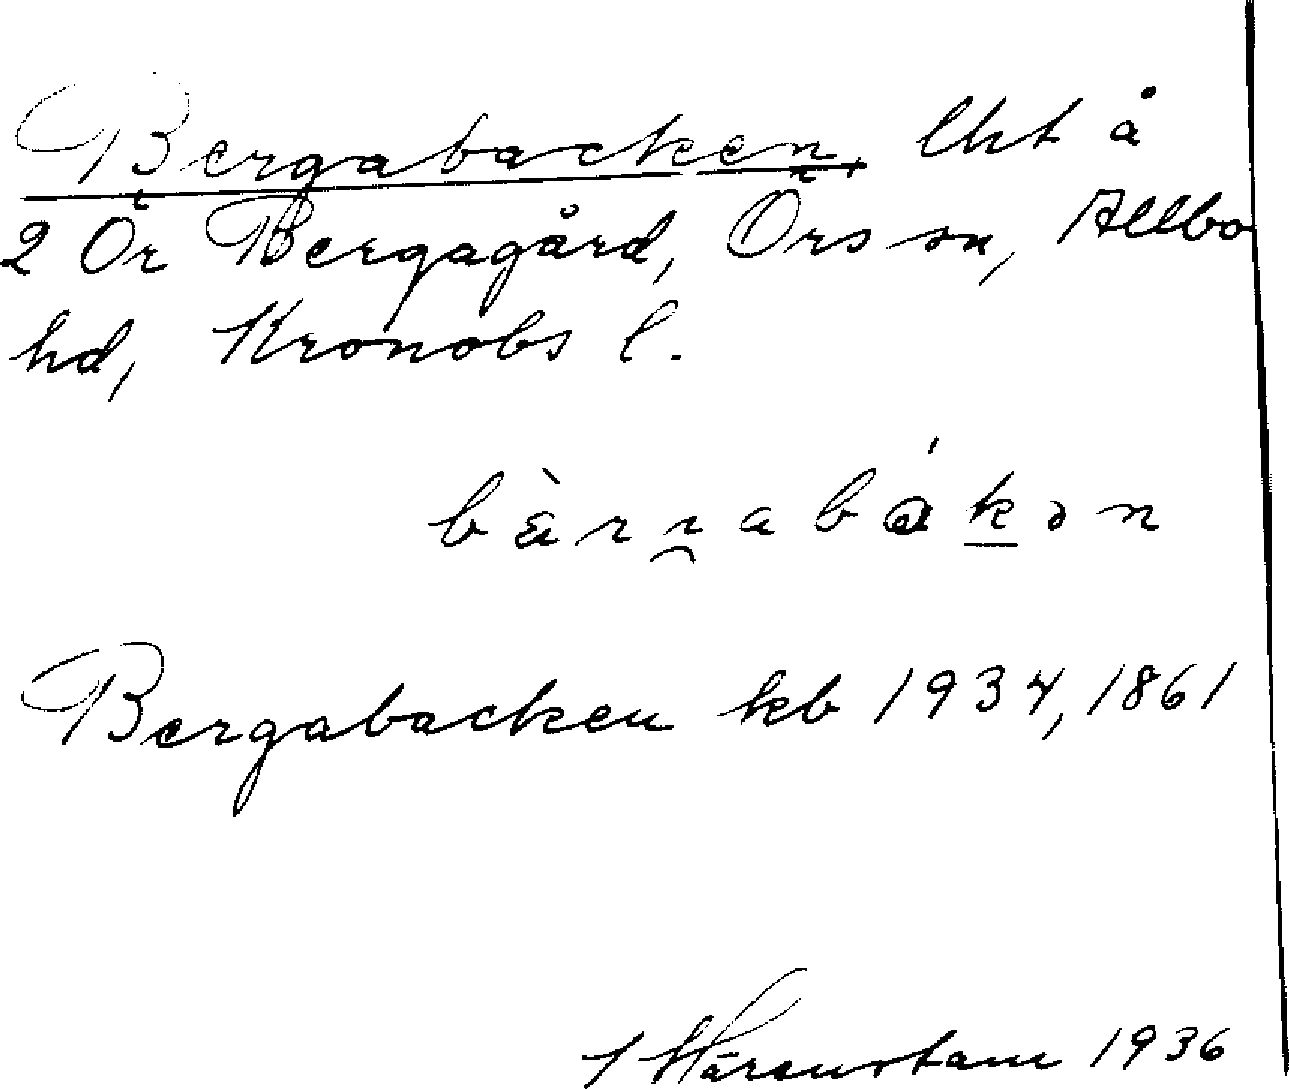 Bergabacken, lht å
2 Ör Bergagård, Örs sn, Allbo
hd, Kronobs l.
bàrɹ̯abákən
Bergabacken kb 1934, 1861
1936